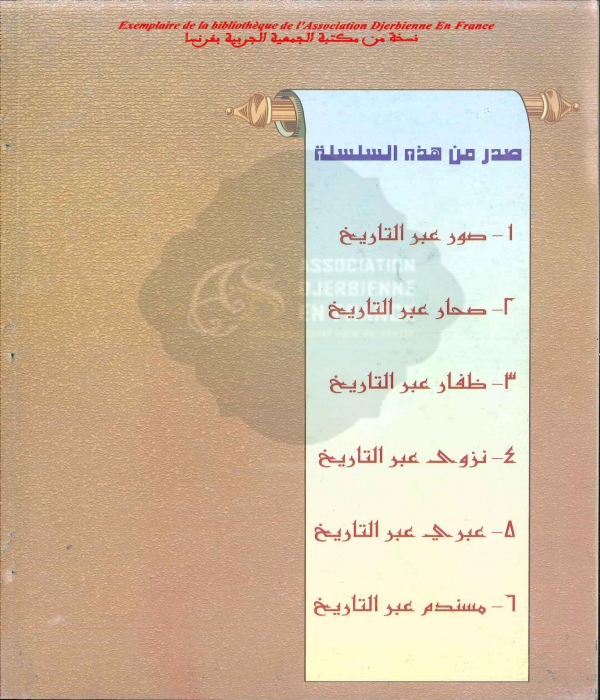 Exemplaire de la bibliothèque de l'Association Djerbienne En France
نسخة من مكتبة الجمعية الجربية بفرنسا
صدر من هذه السلسلة
١- صور عبر التاريخ
ASSOCIATION
DJERBIENNE
٢- صحار عبر التاريخ
٣- ظفار عبر التاريخ
٤- نزوى عبر التاريخ
٥- عبري عبر التاريخ
٦- مسندم عبر التاريخ